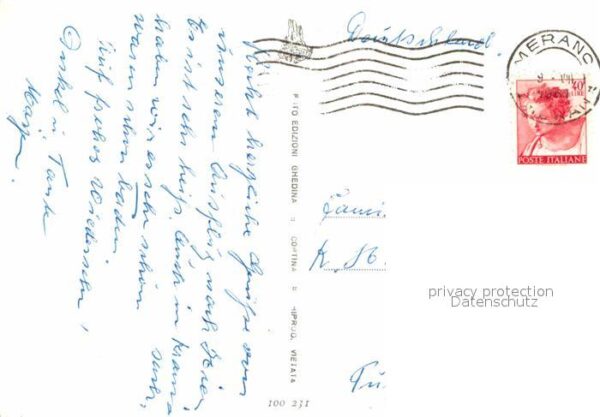 Recht herzliche Grüße von
unserem Ausflug nach hier.
Es ist sehr heiß. Auch in
haben wir es sehr schön
waren schon baden
Auf frohes Wiedersehn,
Onkel u. Tante
Deutschland.
MERANO
40
LIRE
POSTE ITALIANE
FOTO EDIZIONI GHEDINA = CORTINA = RIPROD. VIETATA
Fami
K. St.
privacy protection
Datenschutz
100 231